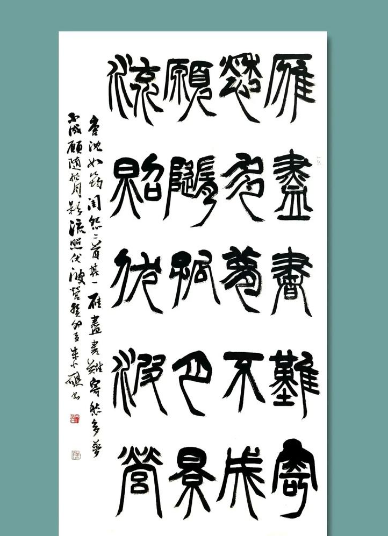 雁盡書難寄
愁多夢不成
願隨孤月景
流照伏波營
唐沈如筠閨怨二首其一雁盡書難寄愁多夢
不成願隨孤月影流照伏波營